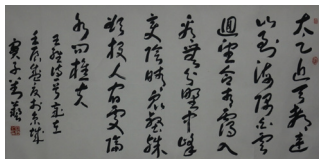 太乙近天都連
山到海隅白雲
迴望合青靄入
看無分野中峰
變陰晴衆壑殊
欲投人宿處隔
水問樵夫
王維詩